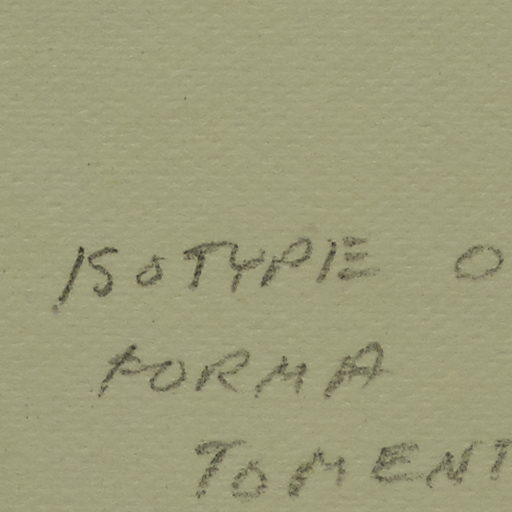 ISOTYPE O
FORMA
TOMENT